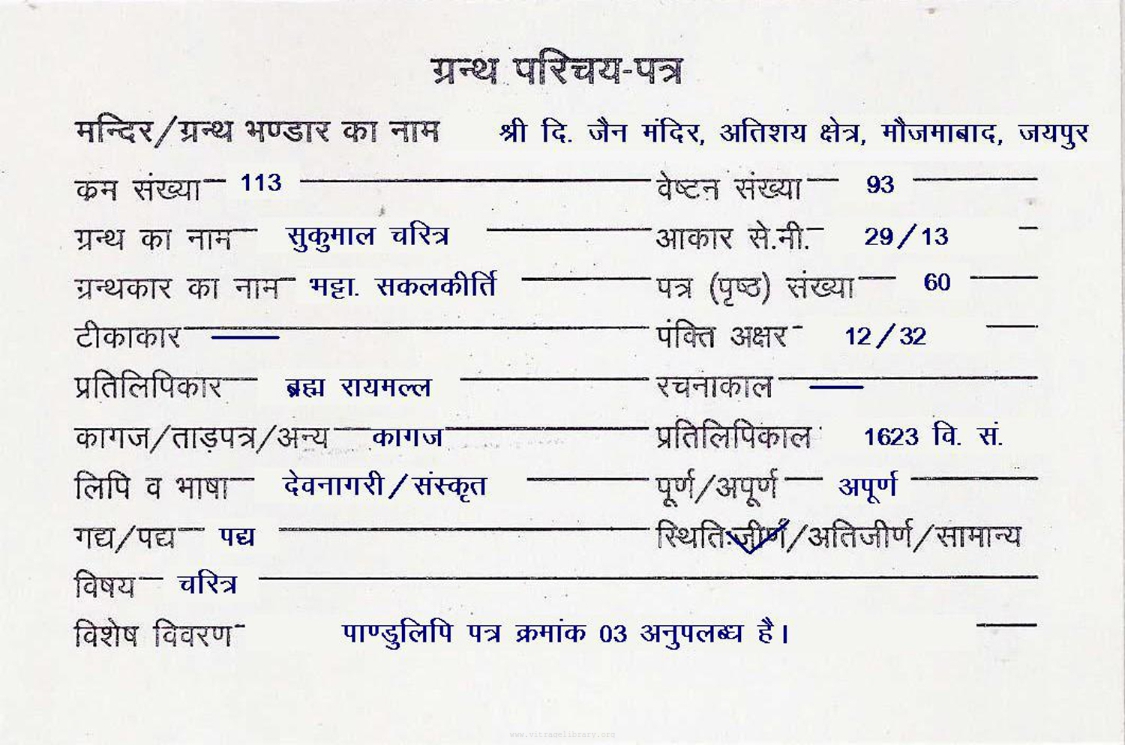 ग्रन्थ परिचय-पत्र
मन्दिर/ग्रन्थ भण्डार का नाम श्री दि. जैन मंदिर, अतिशय क्षेत्र, मौजमाबाद, जयपुर
क्रम संख्या 113 वेष्टन संख्या 93
ग्रन्थ का नाम सुकुमाल चरित्र आकार से.मी. 29/13
ग्रन्थकार का नाम भट्टा. सकलकीर्ति पत्र (पृष्ठ) संख्या 60
टीकाकार — पंक्ति अक्षर 12/32
प्रतिलिपिकार ब्रह्म रायमल्ल रचनाकाल —
कागज/ताड़पत्र/अन्य कागज प्रतिलिपिकाल 1623 वि. सं.
लिपि व भाषा देवनागरी/संस्कृत पूर्ण/अपूर्ण अपूर्ण
गद्य/पद्य पद्य स्थिति:जीर्ण/अतिजीर्ण/सामान्य
विषय चरित्र
विशेष विवरण पाण्डुलिपि पत्र क्रमांक 03 अनुपलब्ध है।